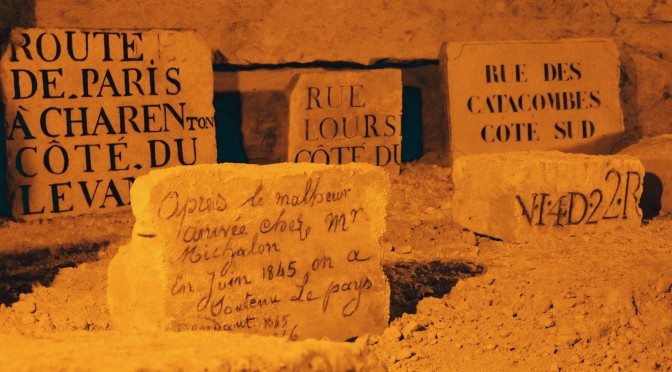 ROUTE
DE.PARIS
À CHARENTON
CÔTÉ.DU
LEVAN
RUE
LOURSI
CÔTÉ DU
RUE DES
CATACOMBES
COTÉ SUD
Après le malheur
arrivée chez Mr
Michalon
En Juin 1845 on a
Soutenu Le pays
pendant
VI·4D·22·R